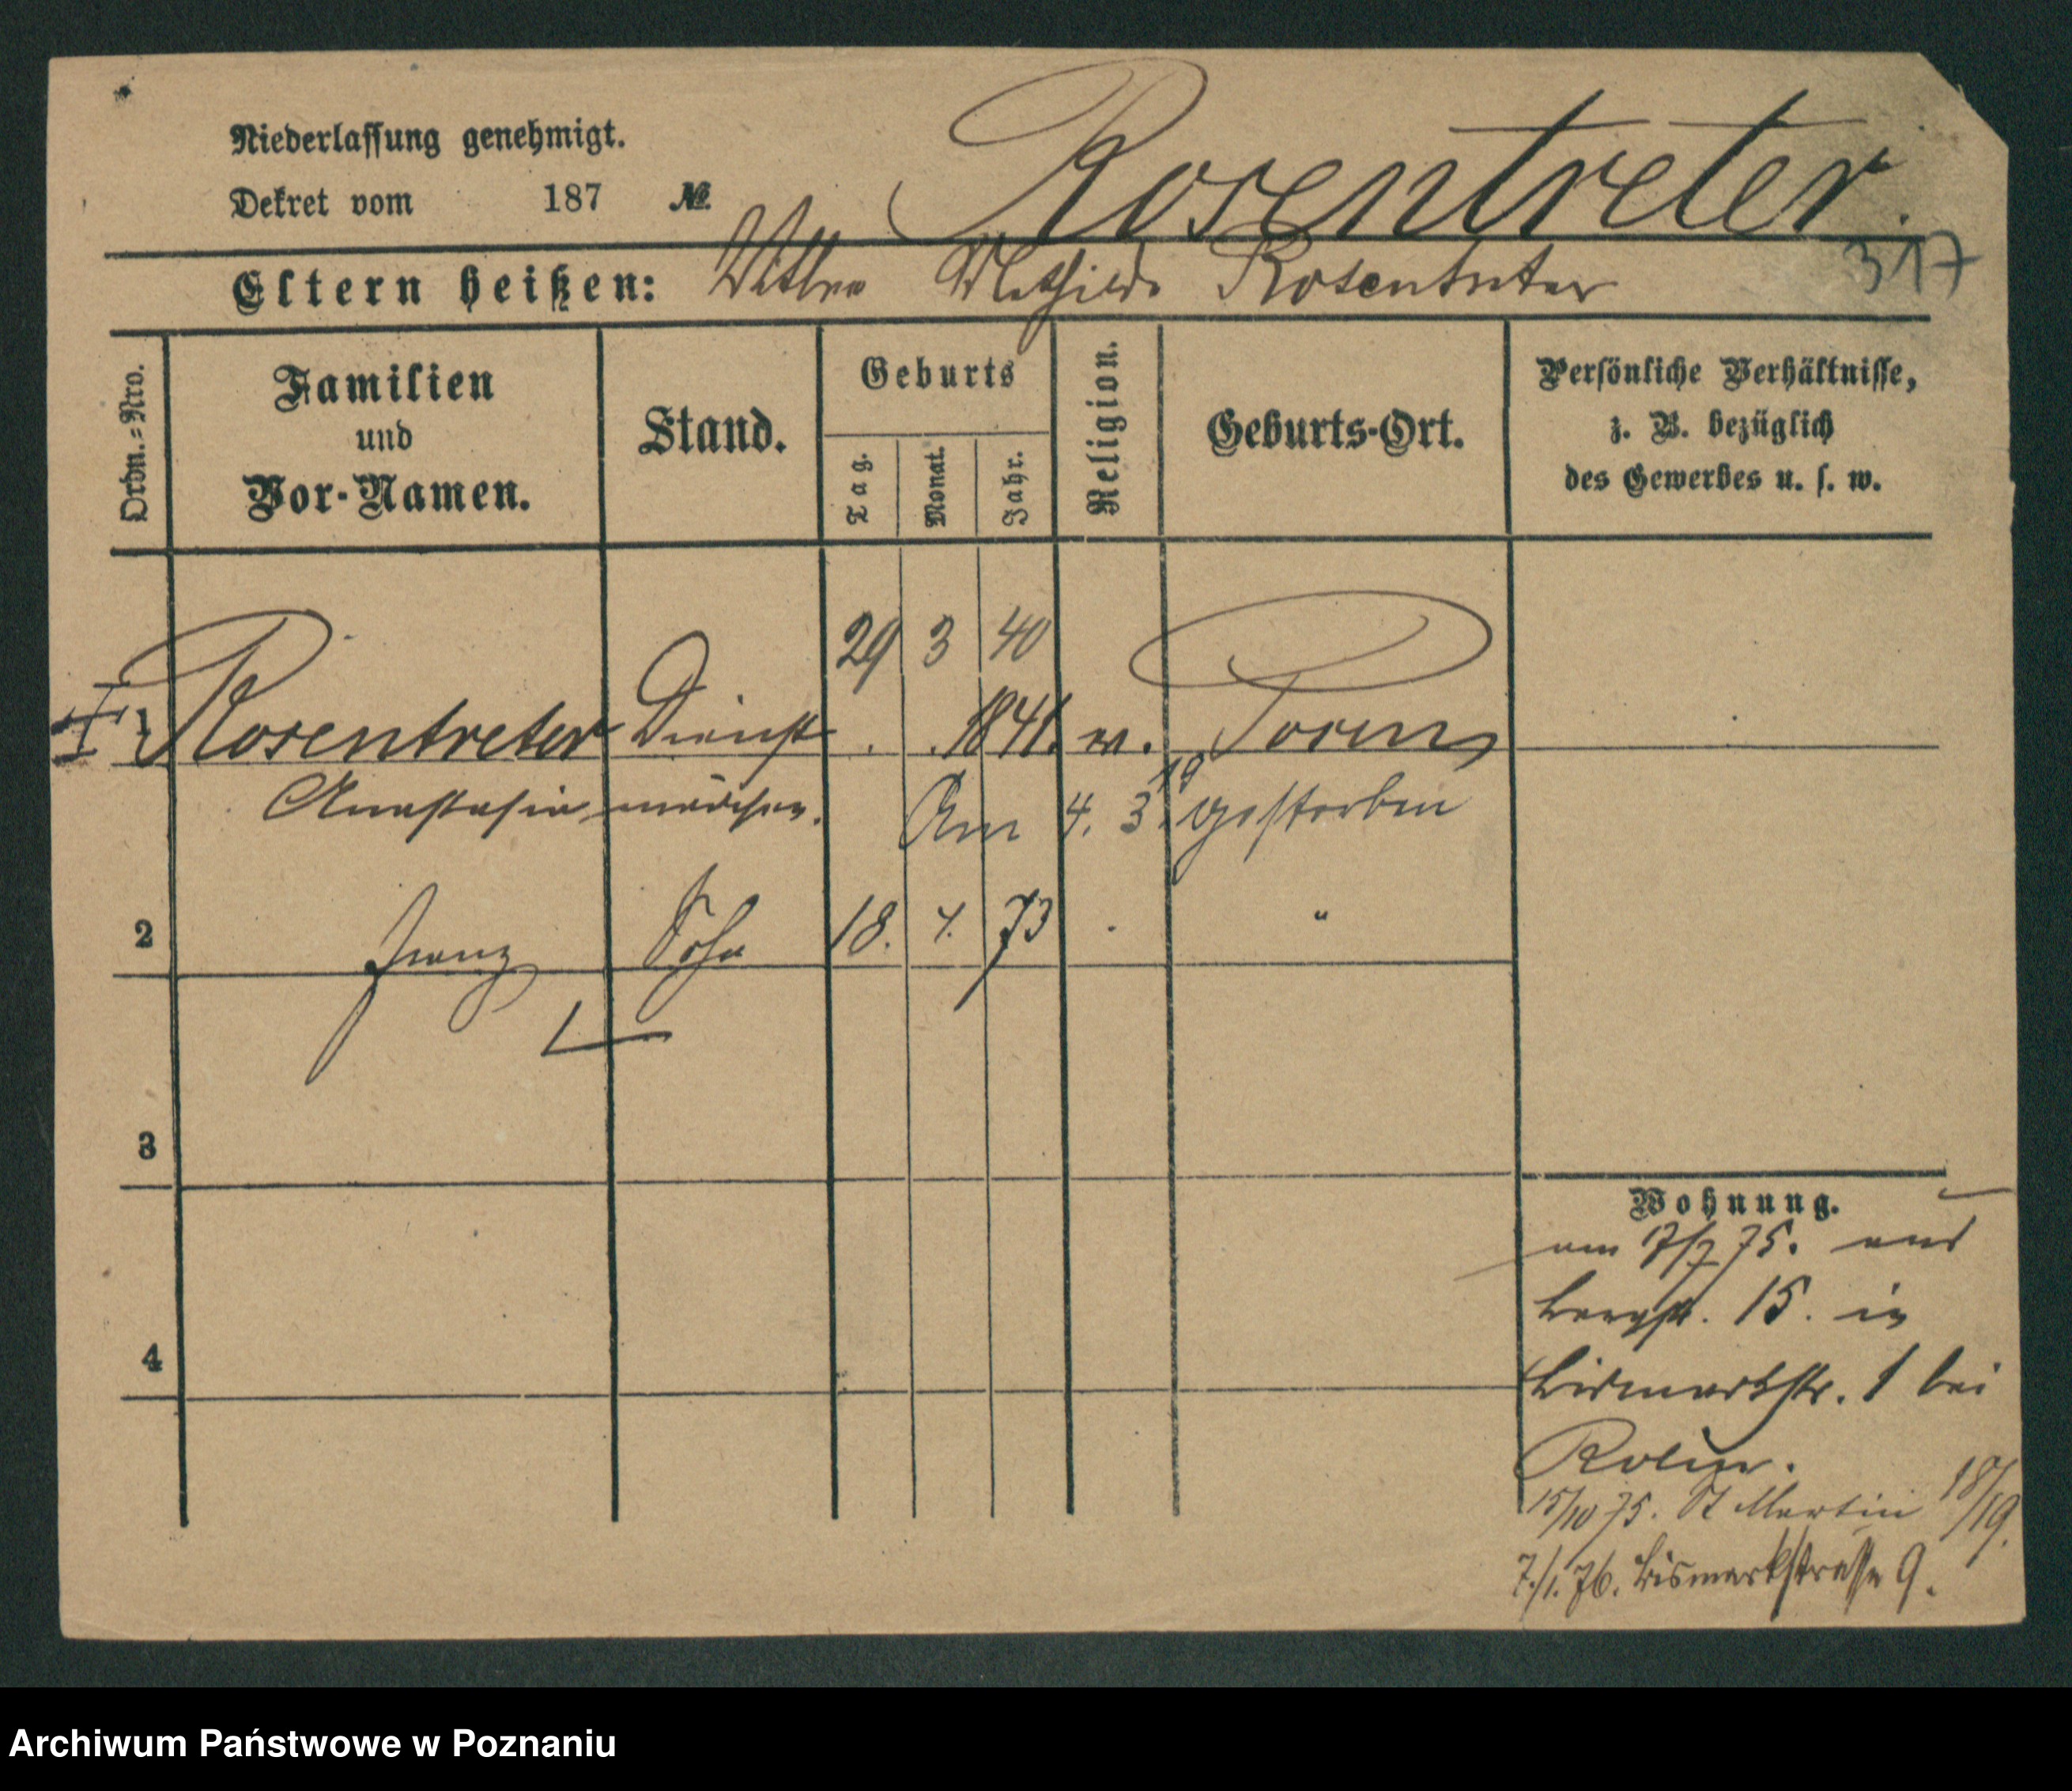 Niederlassung genehmigt.
Dekret vom 187 №
Rosentreter.
317
Eltern heißen: Mathilde Rosentreter
Ordn.-Nro.
Familien und Vor-Namen.
Stand.
Geburts
Tag.
Monat.
Jahr.
Religion.
Geburts-Ort.
Persönliche Verhältnisse,
z. B. bezüglich
des Gewerbes u. s. w.
29 3 40
1 Rosentreter Dienst 1841. Posen
Anastasia mädchen.
Am 4. 3. 19 gestorben
2 Franz Sohn 18. 73 "
3
4
Wohnung.
am 17/7 75. aus
Bergstr. 15. in
Bismarkstr. 1 bei
15/10 75. St Martin 18/19.
7./1. 76. Bismarkstrasse 9.
Archiwum Państwowe w Poznaniu